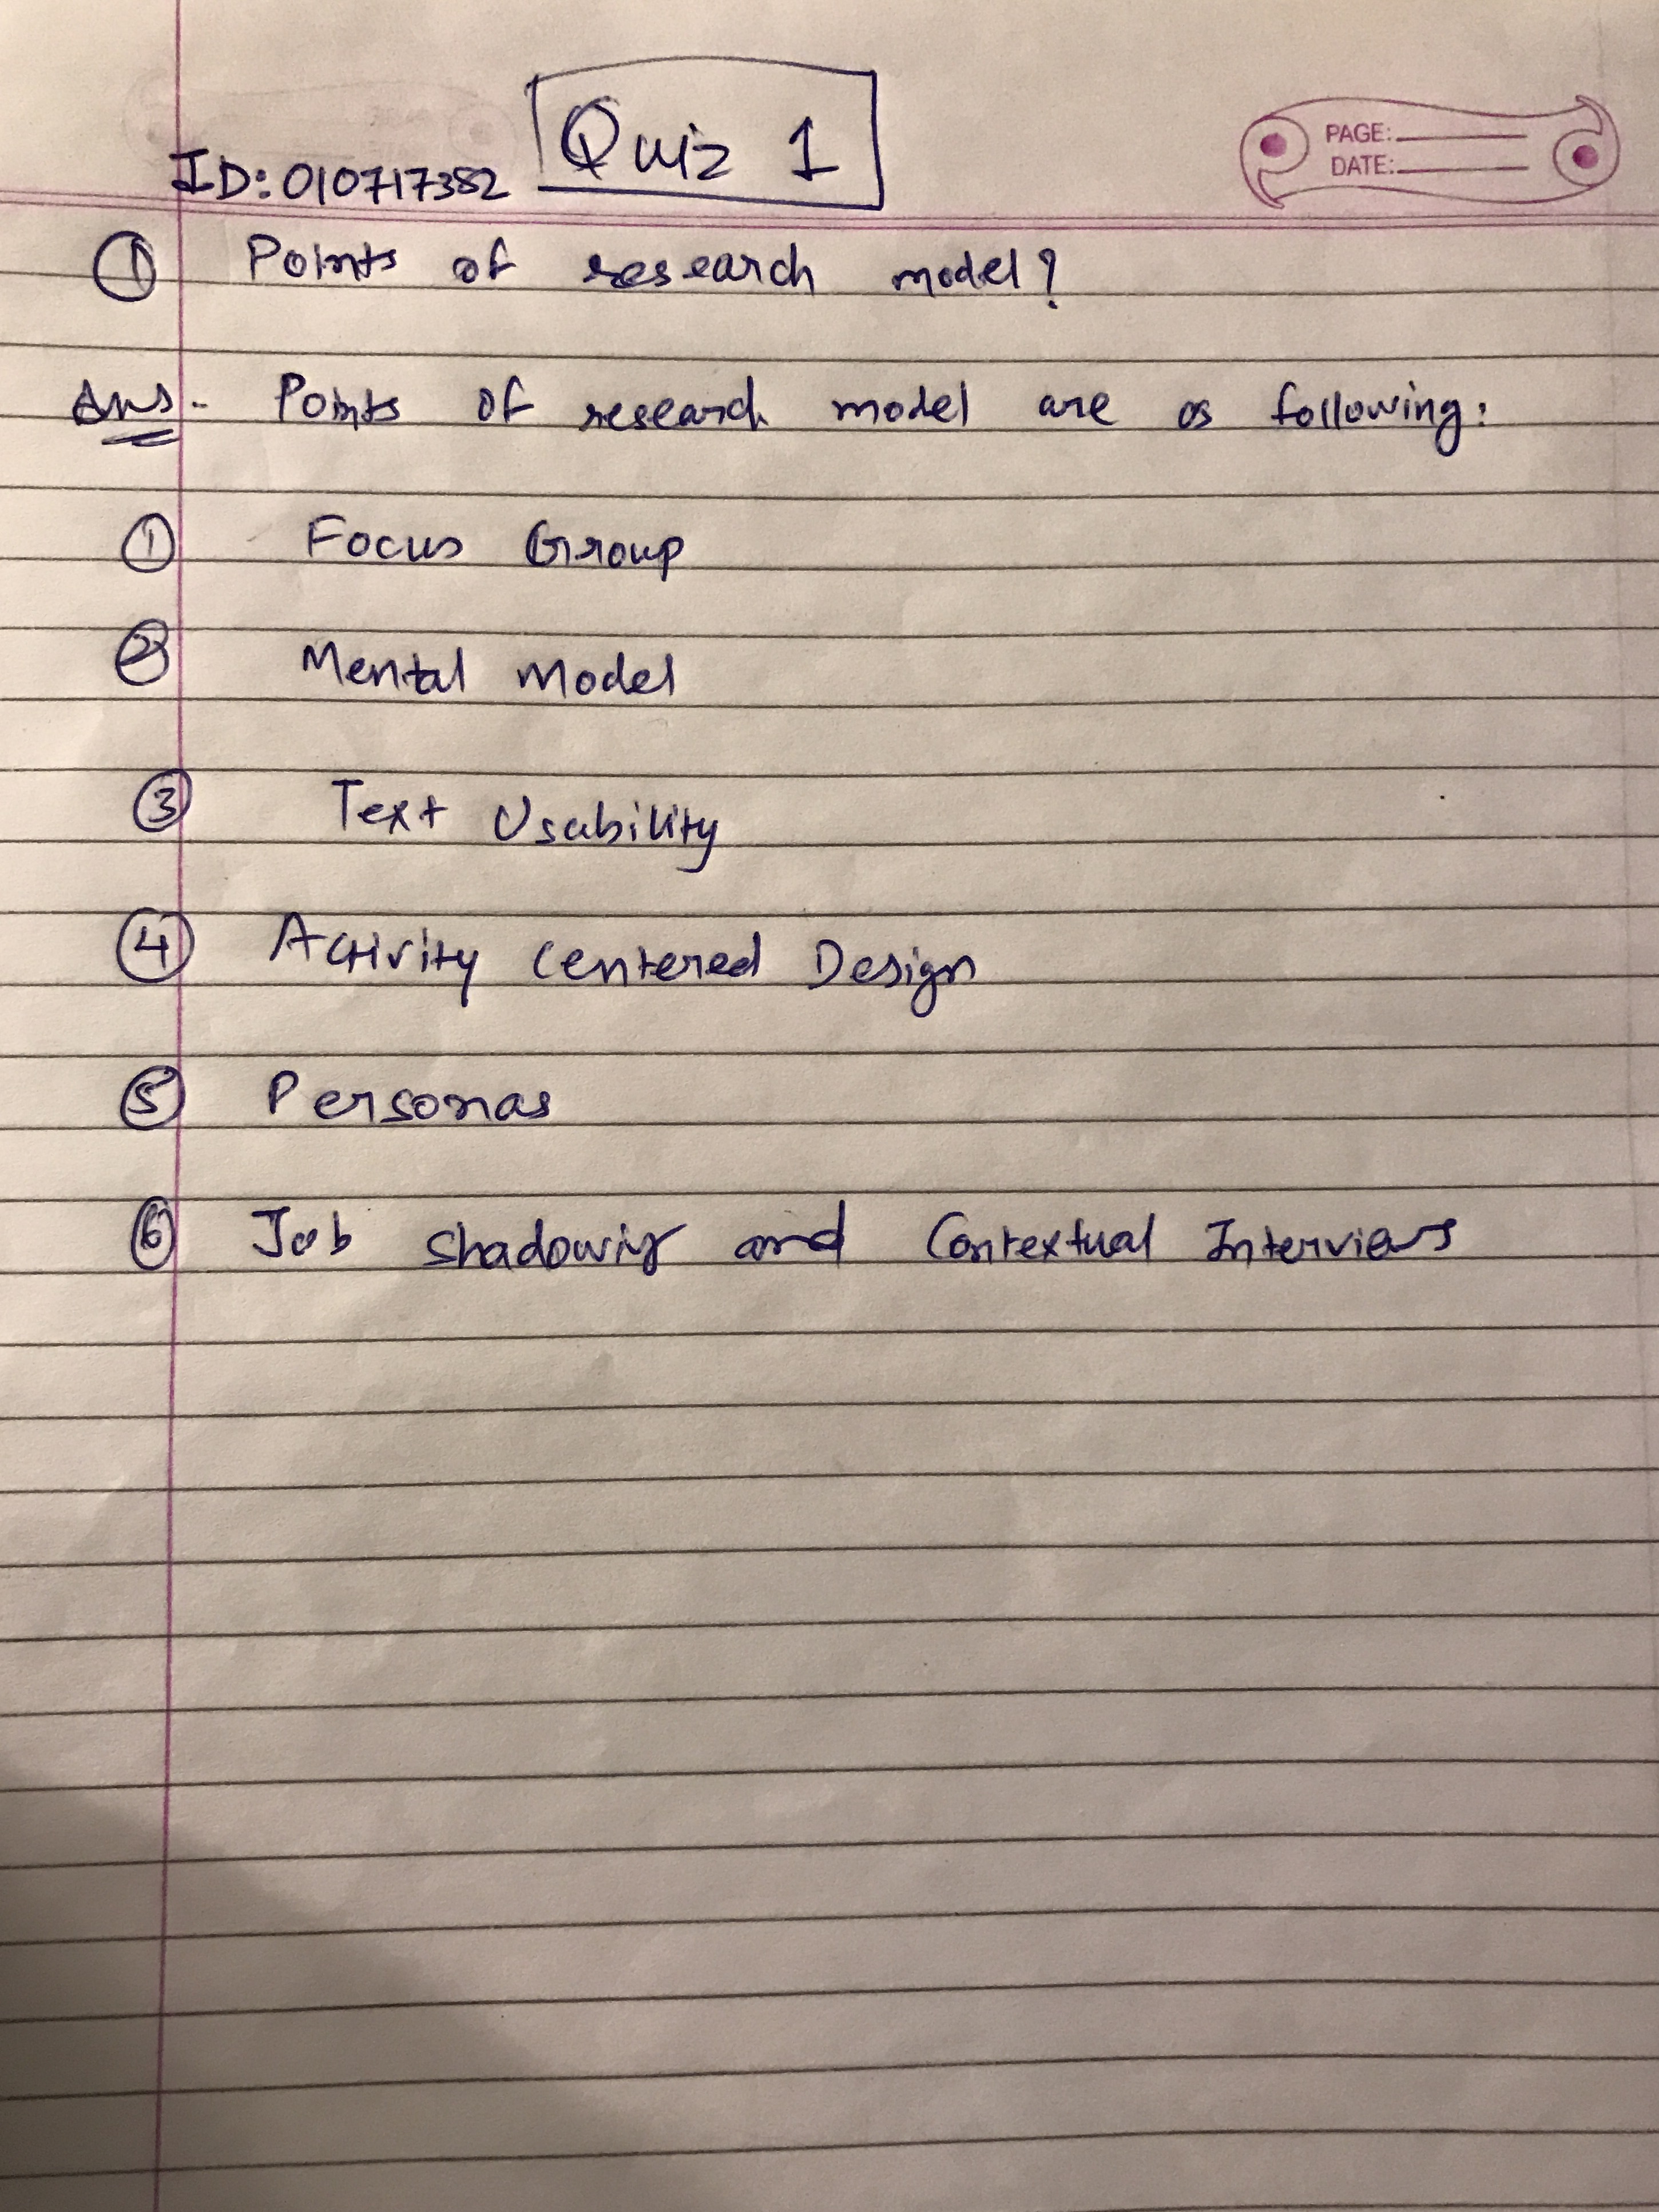 Quiz 1
PAGE:
DATE:
ID: 010717382
① Points of research model?
Ans- Points of research model are as following:
① Focus Group
② Mental Model
③ Text Usability
④ Activity Centered Design
⑤ Personas
⑥ Job shadowing and Contextual Interviews